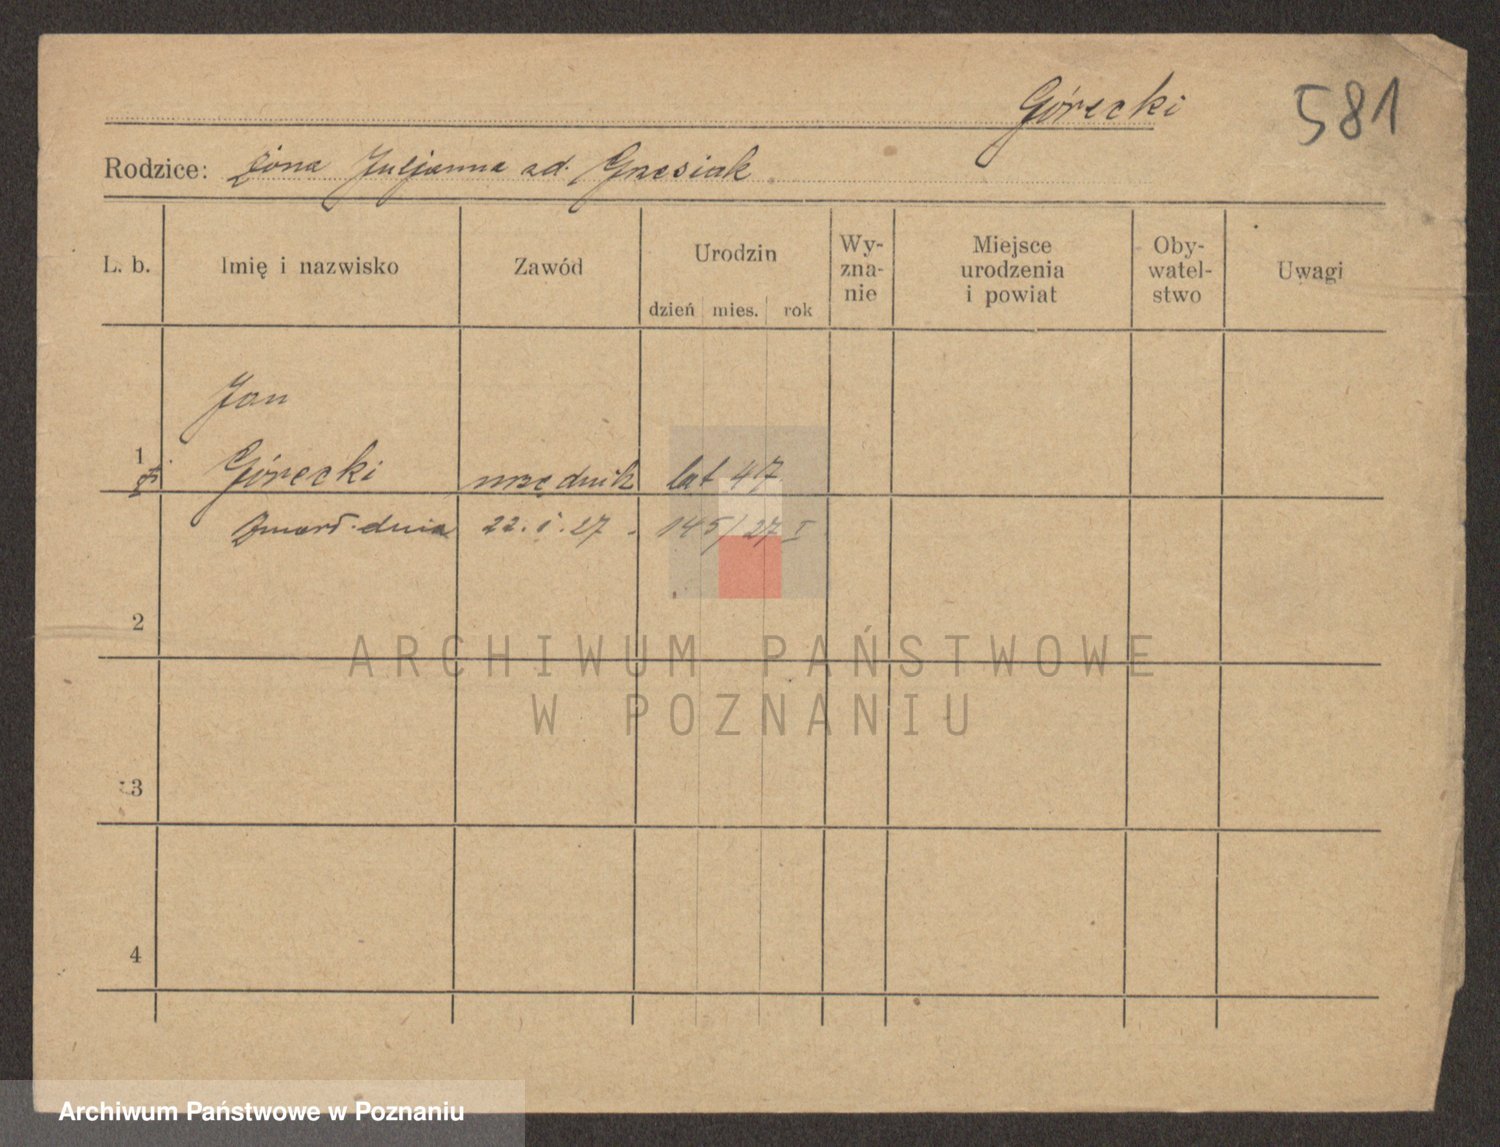 Górecki 581
Rodzice: żona Juljanna zd. Grzesiak
L. b. Imię i nazwisko Zawód Urodzin dzień mies. rok Wy-zna-nie Miejsce urodzenia i powiat Oby-watel-stwo Uwagi
Jan
1 Górecki urzędnik lat 47
Zmarł dnia 22. I. 27. 145/27 I
2
3
4
ARCHIWUM PAŃSTWOWE
W POZNANIU
Archiwum Państwowe w Poznaniu